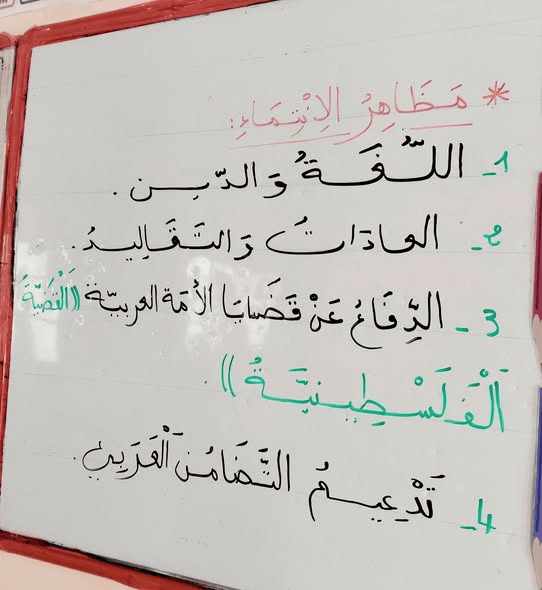 * مَظَاهِرُ الِانْتِمَاءِ:
1- اللُّغَةُ وَالدّين.
2- العادَاتُ وَالتَّقَالِيدُ.
3- الدِّفَاعُ عَنْ قَضَايَا الأُمَّة العربيّة ((الْقَضِيَّة
الْفَلَسْطِينيَّةُ)).
4- تَدْعِيمُ التَّضَامُنِ الْعَرَبِي.